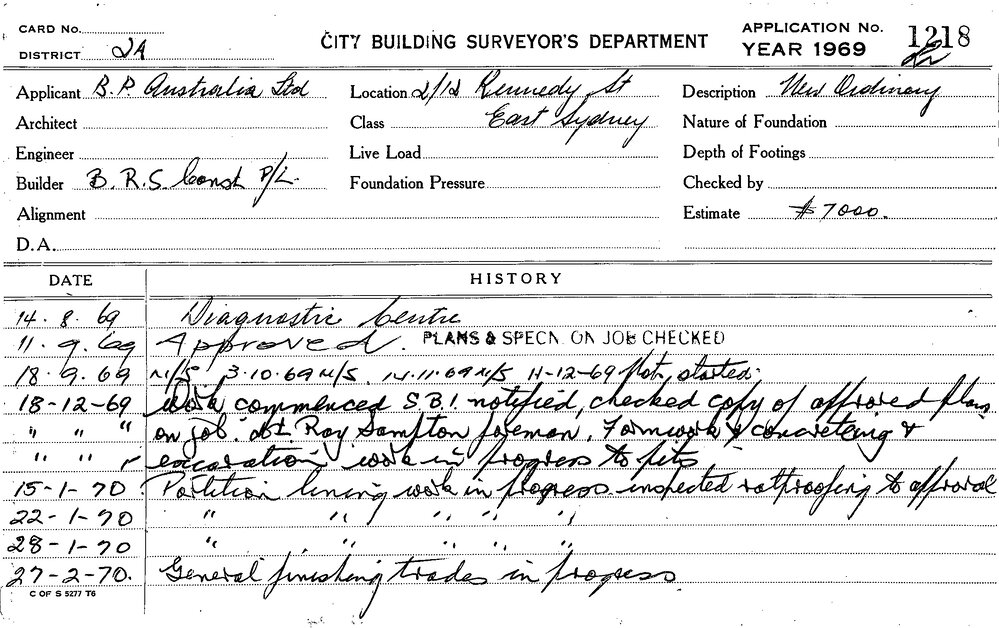 CARD No.
DISTRICT 2A
CITY BUILDING SURVEYOR'S DEPARTMENT
APPLICATION No. 1218
YEAR 1969
Applicant B.P. Australia Ltd Location 2/12 Kennedy St Description New Ordinary
Architect Class East Sydney Nature of Foundation
Engineer Live Load Depth of Footings
Builder B.R.S. Const P/L. Foundation Pressure Checked by
Alignment Estimate $7000.
D.A.
DATE HISTORY
14.8.69 Diagnostic Centre
11.9.69 Approved. PLANS & SPECN. ON JOB CHECKED
18.9.69 N/S 3.10.69 N/S. 14.11.69 N/S 11-12-69 Not started.
18-12-69 Work commenced S.B.I. notified, checked copy of approved plans
" " " on job. Ray Sampton foreman. Formwork & concreteing &
" " " excavation work in progress to pits
15-1-70 Partition lining work in progress inspected ratproofing to approval
22-1-70 " " " " "
28-1-70 " " " " "
27-2-70. General finishing trades in progress
C OF S 5277 T6